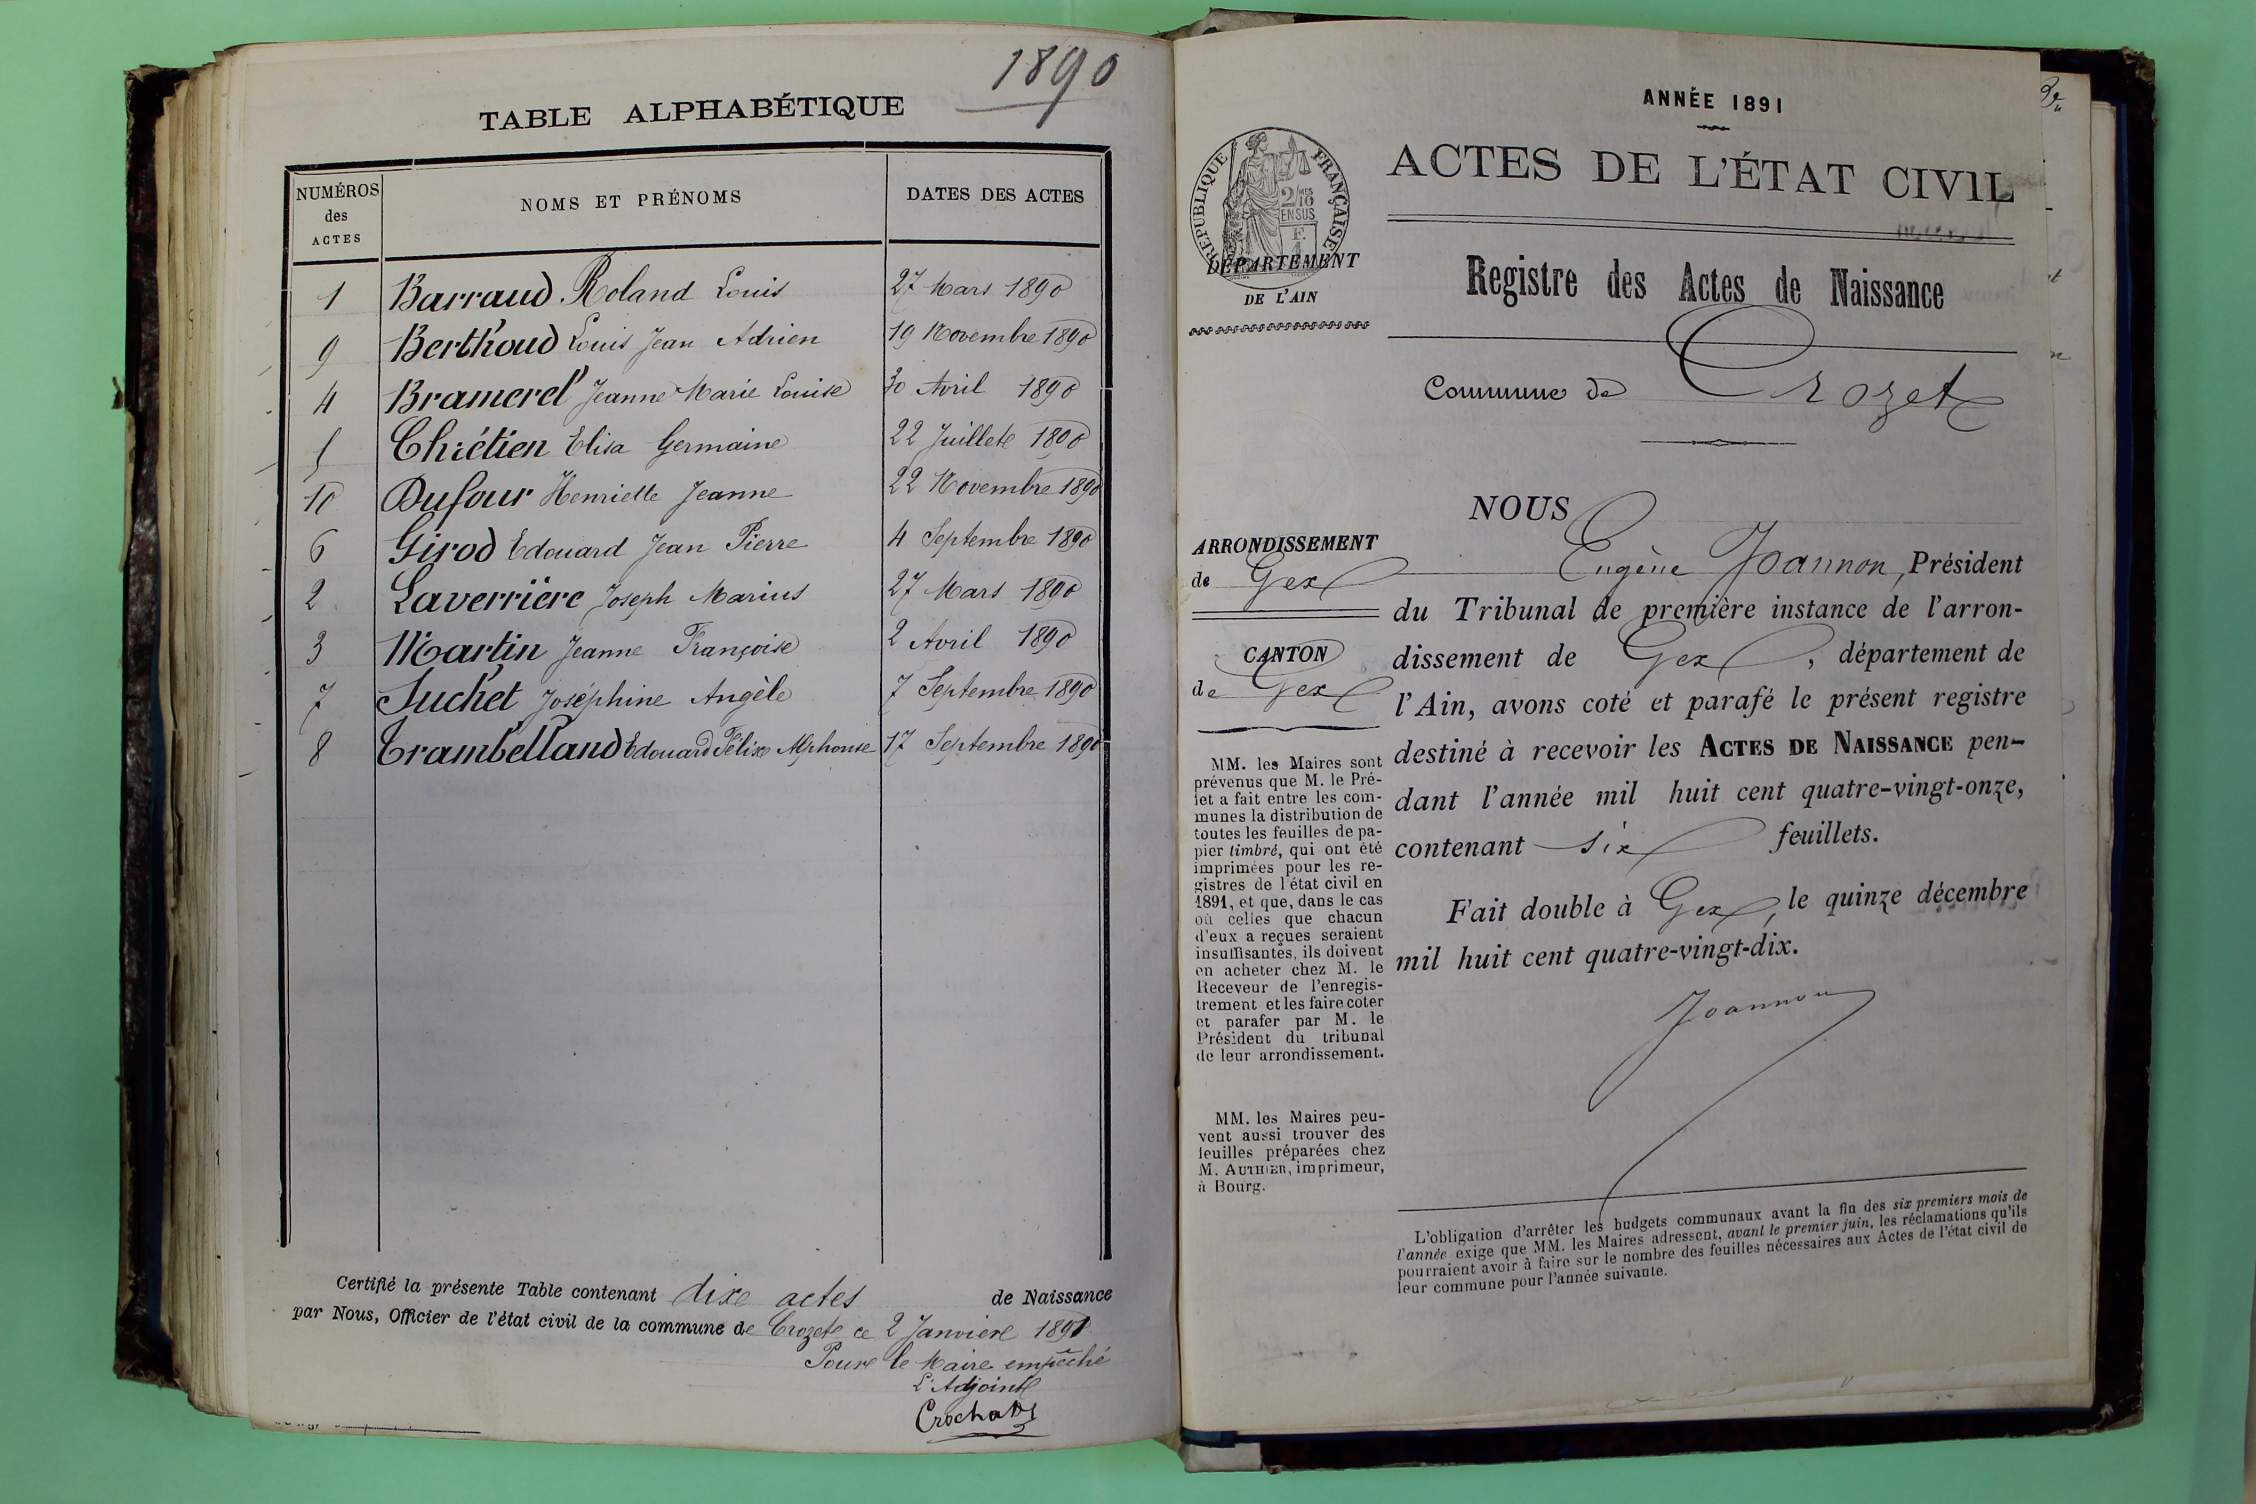 1890
TABLE ALPHABÉTIQUE
NUMÉROS des ACTES NOMS ET PRÉNOMS DATES DES ACTES
1 Barraud Roland Louis 27 Mars 1890
9 Berthoud Louis Jean Adrien 19 Novembre 1890
4 Bramerel Jeanne Marie Louise 30 Avril 1890
5 Chrétien Elisa Germaine 22 Juillet 1890
10 Dufour Henriette Jeanne 22 Novembre 1890
6 Girod Edouard Jean Pierre 4 Septembre 1890
2 Laverrière Joseph Marius 27 Mars 1890
3 Martin Jeanne Françoise 2 Avril 1890
7 Suchet Joséphine Angèle 7 Septembre 1890
8 Trambelland Edouard Félix Alphonse 17 Septembre 1890
Certifié la présente Table contenant dix actes de Naissance
par Nous, Officier de l'état civil de la commune de Crozet ce 2 Janvier 1891
Pour le Maire empêché
L'Adjoint
Crochat
ANNÉE 1891
ACTES DE L'ÉTAT CIVIL
RÉPUBLIQUE FRANÇAISE
2/10
EN SUS
DÉPARTEMENT
DE L'AIN
Registre des Actes de Naissance
Commune de Crozet
ARRONDISSEMENT
de Gex
CANTON
de Gex
MM. les Maires sont
prévenus que M. le Pré-
fet a fait entre les com-
munes la distribution de
toutes les feuilles de pa-
pier timbré, qui ont été
imprimées pour les re-
gistres de l'état civil en
1891, et que, dans le cas
où celles que chacun
d'eux a reçues seraient
insuffisantes, ils doivent
en acheter chez M. le
Receveur de l'enregis-
trement et les faire coter
et parafer par M. le
Président du tribunal
de leur arrondissement.
MM. les Maires peu-
vent aussi trouver des
feuilles préparées chez
M. AUTHIER, imprimeur,
à Bourg.
NOUS
Eugène Joannon, Président
du Tribunal de première instance de l'arron-
dissement de Gex, département de
l'Ain, avons coté et parafé le présent registre
destiné à recevoir les ACTES DE NAISSANCE pen-
dant l'année mil huit cent quatre-vingt-onze,
contenant six feuillets.
Fait double à Gex, le quinze décembre
mil huit cent quatre-vingt-dix.
Joannon
L'obligation d'arrêter les budgets communaux avant la fin des six premiers mois de
l'année exige que MM. les Maires adressent, avant le premier juin, les réclamations qu'ils
pourraient avoir à faire sur le nombre des feuilles nécessaires aux Actes de l'état civil de
leur commune pour l'année suivante.